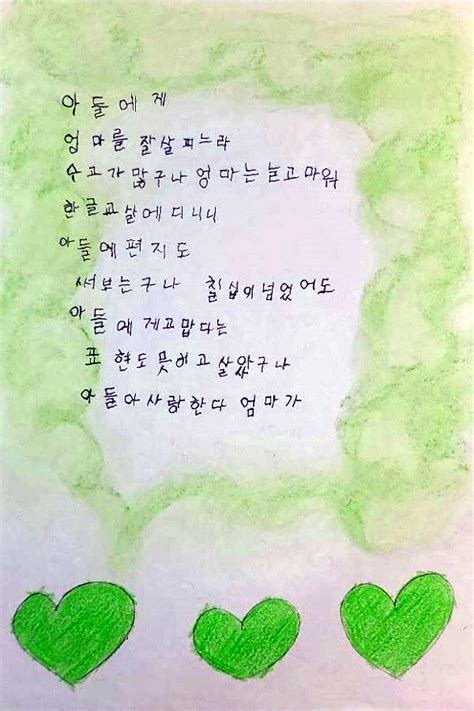 아들에게
엄마를 잘살피느라
수고가 많구나 엄마는 늘고마워
한글교실에 디니니
아들에편지도
써보는구나 칠십이넘었어도
아들에게고맙다는
표현도못하고살았구나
아들아사랑한다 엄마가